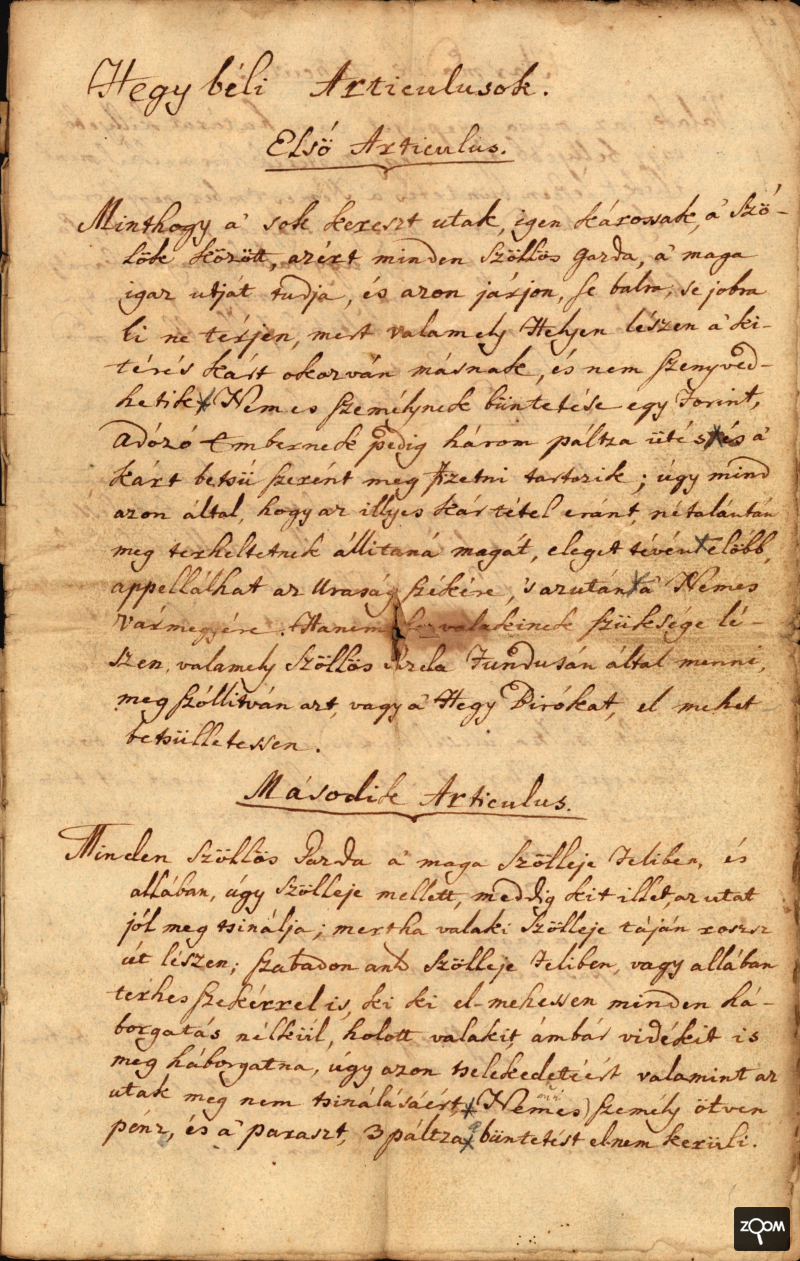 Hegy béli Articulusok.
Első Articulus.
Minthogy a' sok kereszt utak, igen károssak, a' Szö-
lök között, azért minden Szöllös Gazda, a' maga
igaz utját tudja, és azon járjon, se balra, se jobra
ki ne térjen, mert valamely Helyen lészen a' ki-
térés kárt okozván másnak, és nem szenyved-
hetik Nemes személynek büntetése egy Forint,
Adózó Embernek pedig három páltza ütés, és a'
kárt betsü szerént meg fizetni tartozik; úgy mind
azon által, hogy az illyes kár tétel eránt, nétalántán
meg terheltetnek állitaná magát, eleget tévén elöbb,
appellálhat az Uraság székére, 's azután a' Nemes
Vármegyére. Hanem ha valakinek szüksége lé-
szen, valamely Szöllös Gazda Fundusán által menni,
meg szóllitván azt, vagy a' Hegy Birókat, el mehet
betsülletessen.
Második Articulus.
Minden Szöllös Gazda a' maga Szölleje Feliben, és
allában, úgy Szölleje mellett, meddig kit illet, az utat
jól meg tsinálja; mert ha valaki Szölleje táján rossz
út lészen; szabadon ant Szölleje Feliben, vagy allában
terhes szekérrel is, ki ki el-mehessen minden há-
borgatás nélkül, holott valakit, ámbár vidékit is
meg háborgatna, úgy azon tselekedetiért valamint az
utak meg nem tsinálásáért, Nemes személy ötven
pénz, és a' paraszt, 3 páltza büntetést el nem kerüli.
ZOOM